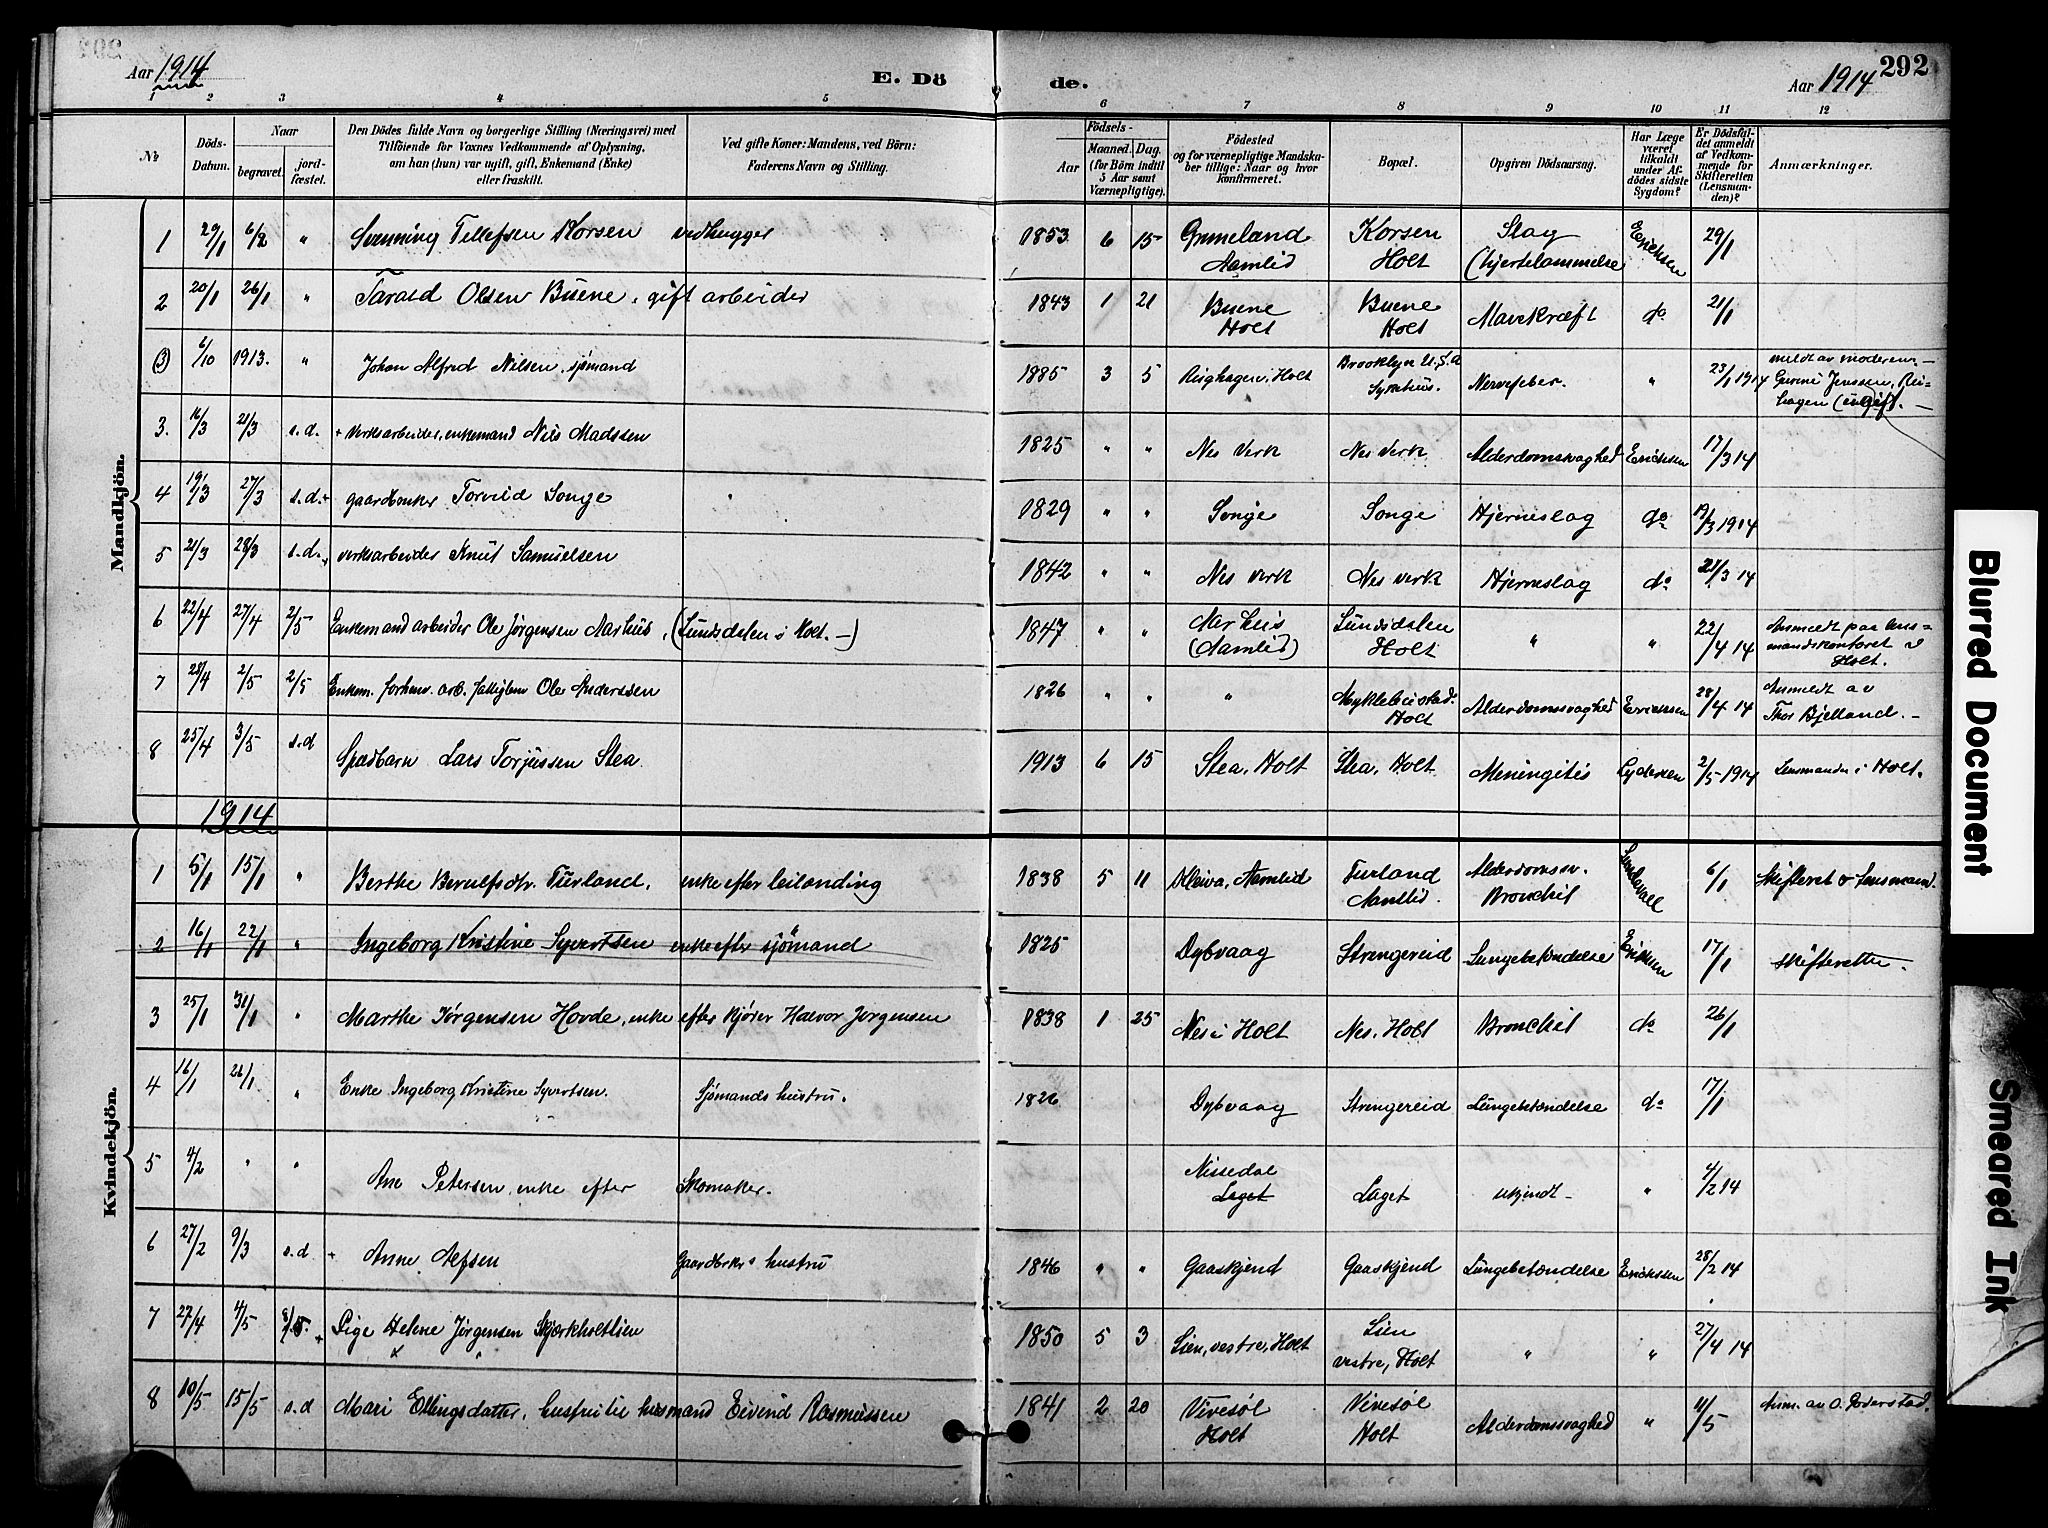 292
Aar 1914
E. Dö de.
Aar 1914
1 2 3 4 5 6 7 8 9 10 11 12
No
Döds-Datum.
Naar
begravet.
jord-fæstet.
Den Dödes fulde Navn og borgerlige Stilling (Næringsvei) med
Tilföiende for Voxnes Vedkommende af Oplysning,
om han (hun) var ugift, gift, Enkemand (Enke)
eller fraskilt.
Ved gifte Koner: Mandens, ved Börn:
Faderens Navn og Stilling.
Födsels-
Aar
Maaned. Dag.
(for Börn indtil
5 Aar samt
Værnepligtige).
Födested
og for værnepligtige Mandska-
ber tillige: Naar og hvor
konfirmeret.
Bopæl.
Opgiven Dödsaarsag.
Har Læge
været
tilkaldt
under Af-
dödes sidste
Sygdom?
Er Dödsfal-
det anmeldt
af Vedkom-
mende for
Skifteretten
(Lensman-
den)?
Anmærkninger.
Mandkjön.
1 29/1 6/2 " Svenning Tellefsen Korsen vedhugger 1853 6 15 Grimeland Aamlid Korsen Holt Slag (hjertelammelse Erichsen 29/1
2 20/1 26/1 " Tarald Olsen Buene, gift arbeider 1843 1 21 Buene Holt Buene Holt Mavekræft do 21/1
(3) 6/10 1913. " Johan Alfred Nilsen, sjømand 1885 3 5 Ringhagen, Holt Brooklyn U.S.A Sykehus. Nervefeber. " 23/1 1914 meldt av moderen Jenssen, (ugift).
3. 16/3 21/3 s.d. + Verksarbeider, enkemand Nils Madssen 1825 " " Nes Verk Nes Verk Alderdomsvaghed Erichsen 17/3 14
4 19/3 27/3 s.d. + gaardbruker Torvild Songe " 1829 " " Songe Songe Hjerneslag do 19/3 1914
5 21/3 28/3 s.d. + verksarbeider Knut Samuelsen 1842 " " Nes verk Nes verk Hjerneslag do 21/3 14
6 22/4 27/4 2/5 Enkemand arbeider Ole Jørgensen Aarhus, (Lundsdalen i Holt. —) 1847 " " Aarhus (Aamlid) Lundsdalen Holt " " 22/4 14 Anmeldt paa lensmandskontoret i Holt.
7 28/4 2/5 2/5 Enkem. forhenv. arb. fattiglem Ole Anderssen 1826 " " " Myklebustad. Holt Alderdomssvaghed Erichsen 28/4 14 Anmeldt av Thor Bjelland. —
8 25/4 3/5 s.d Spædbarn Lars Torjussen Stea 1913 6 15 Stea, Holt Stea, Holt Meningitis Lydersen 2/5 1914 Lensmanden i Holt.
1914
Kvindekjön.
1 5/1 15/1 " Berthe Berulfsdtr. Furland, enke efter leilending 1838 5 11 Kleiva, Aamlid Furland Aamlid. Alderdomssv. Bronchit 6/1 Skifteret & Lensmand.
2 16/1 22/1 " Ingeborg Kristine Syvertsen enke efter sjømand 1825 Dybvaag Strengereid Lungebetændelse Eriksen 17/1 skifteretten.
3 25/1 31/1 " Marthe Jørgensen Hovde, enke efter kjører Halvor Jørgensen 1838 1 25 Nes i Holt Nes, Holt Bronchit do 26/1
4 16/1 26/1 " Enke Ingeborg Kristine Syvertsen. Sjømands hustru. 1826 Dybvaag Strengereid Lungebetændelse do 17/1
5 4/2 " " Ane Petersen, enke efter Skomaker. Nissedal Laget Laget ukjendt - " 4/2 14
6 27/2 9/3 s.d + Anne Alfsen Gaardbrkrs hustru 1846 " " Gaaskjend Gaaskjend Lungebetændelse Erichsen 28/2 14
7 27/4 4/5 8/5 + Pige Helene Jørgensen Skjærkholtlien 1850 5 3 Lien, vestre, Holt Lien vestre, Holt " " 27/4 14
8 10/5 15/5 s.d Mari Ellingsdatter, hustru til husmand Eivind Rasmussen 1841 2 20 Vivesøl Holt Vivesøl Holt Alderdomssvaghed " 11/5 Anm. av O. Goderstad.
Blurred Document
Smeared Ink